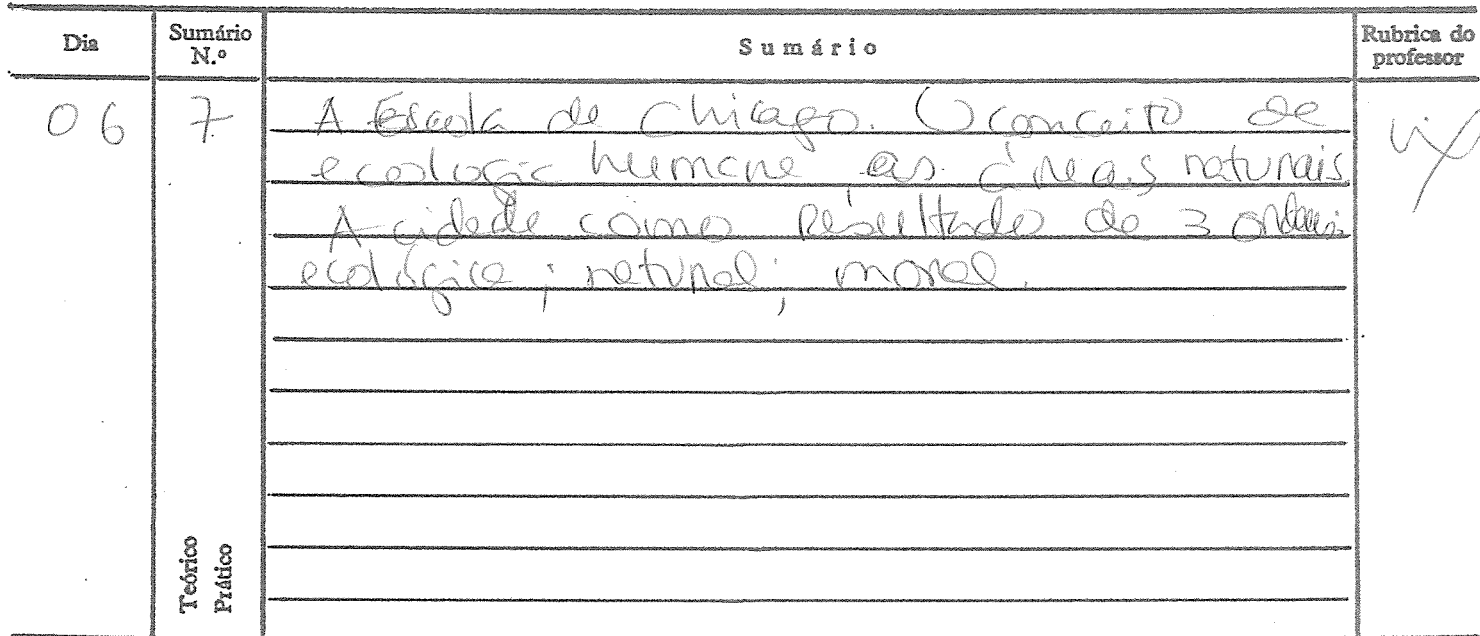 Dia
Sumário
N.º
Sumário
Rubrica do
professor
06
7
A Escola de Chicago. O conceito de
ecologia humana e as áreas naturais
A cidade como resultado de 3 ordens:
ecológica; natural; moral.
Teórico
Prático